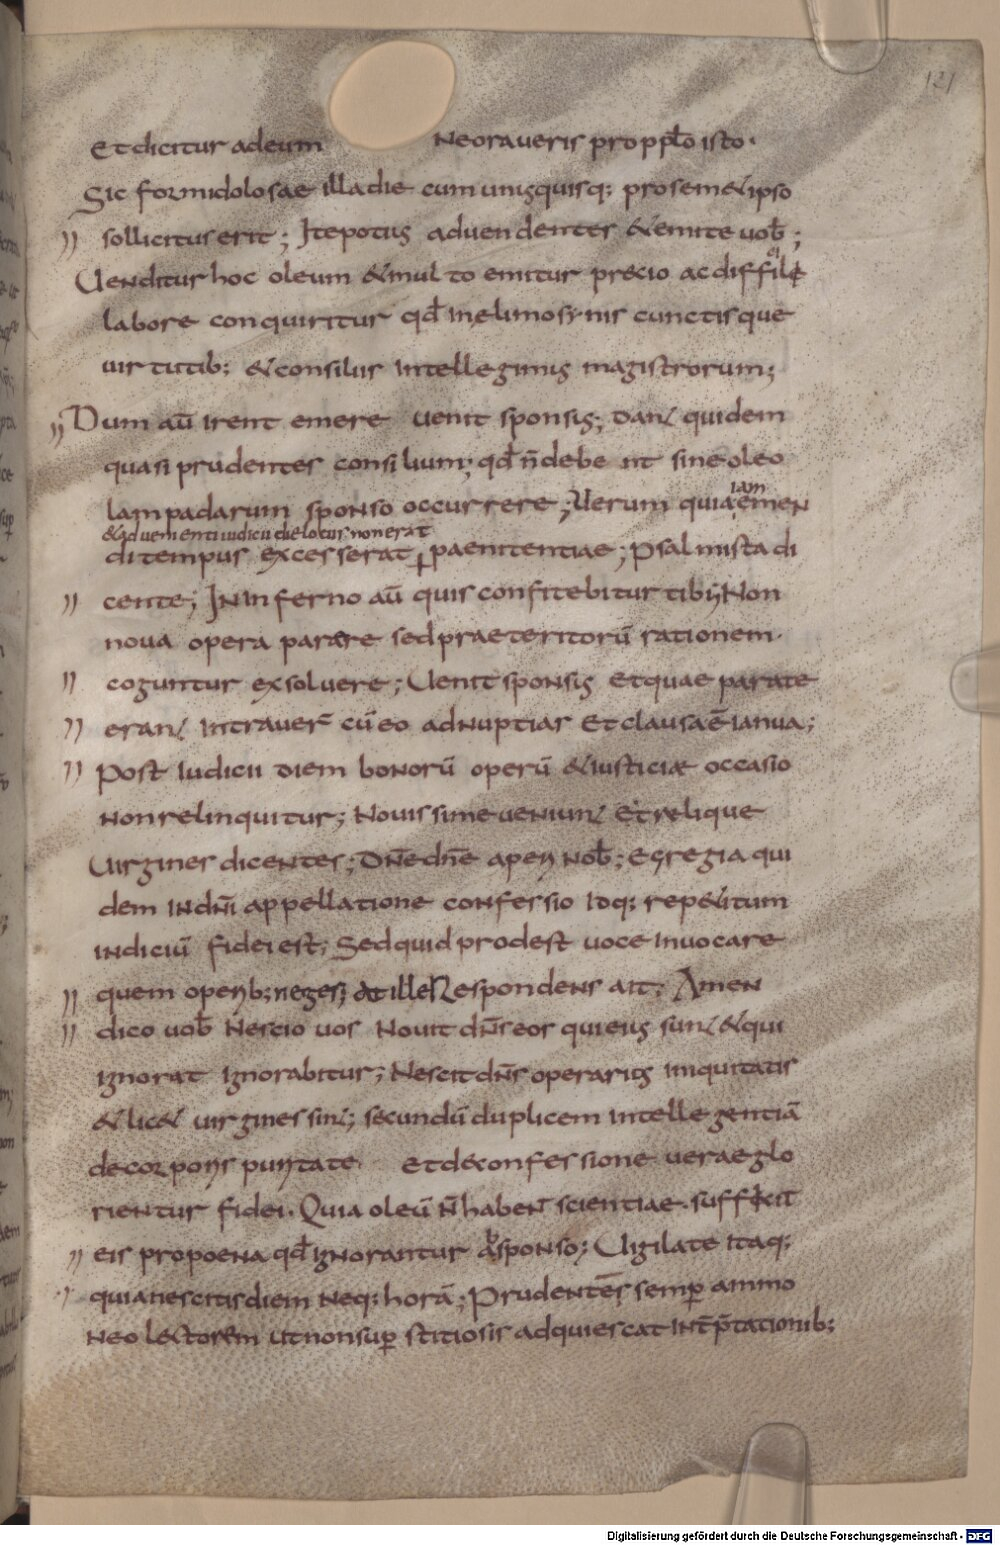 121
Et dicitur ad eum Ne oraveris pro pplo isto.
Sic formidolosae illa die cum unusquisq; pro sem&ipso
sollicitus erit; Ite potius ad vendentes & emite vob;
Uenditur hoc oleum & multo emitur precio ac difficile
labore conquiritur qd in elimosynis cunctisque
virtutib; & consiliis intellegimus magistrorum;
Dum aū irent emere venit sponsus; Dant quidem
quasi prudentes consilium; qd n̄ debeent sine oleo
lampadarum sponso occurrere; Uerum quia iam emen
& advenienti iudicii die locus non erat
di tempus excesserat paenitentiae; Psalmista di
cente; In inferno aū quis confitebitur tibi; Non
nova opera parare sed praeteritorū rationem.
coguntur exsolvere; Uenit sponsus et quae parate
erant intraver̄ cū eo ad nuptias et clausa ē ianua;
Post iudicii diem bonorū operū & iusticiae occasio
non relinquitur; Novissime veniunt et relique
Uirgines dicentes; Dn̄e dn̄e aperi nob; Egregia qui
dem in dn̄i appellatione confessio idq; rep&itum
indiciū fidei est; Sed quid prodest voce invocare
quem operib; neges; at ille Respondens ait; Amen
dico vob Nescio vos Novit dn̄s eos qui eius sunt & qui
ignorat ignorabitur; Nescit dn̄s operarius iniquitatis
& lic& virgines sint; secundū duplicem intellegentiā
de corporis puritate et de confessione verae glo
rientur fidei. Quia oleū n̄ haben̄ scientiae. sufficit
eis pro poena qd ignorantur a sponso; Uigilate itaq;
quia nescitis diem neq; horā; Prudentēs semper ammo
neo lectorem ut non sup stitiosis adquiescat int̄p̄tationib;
Digitalisierung gefördert durch die Deutsche Forschungsgemeinschaft - DFG